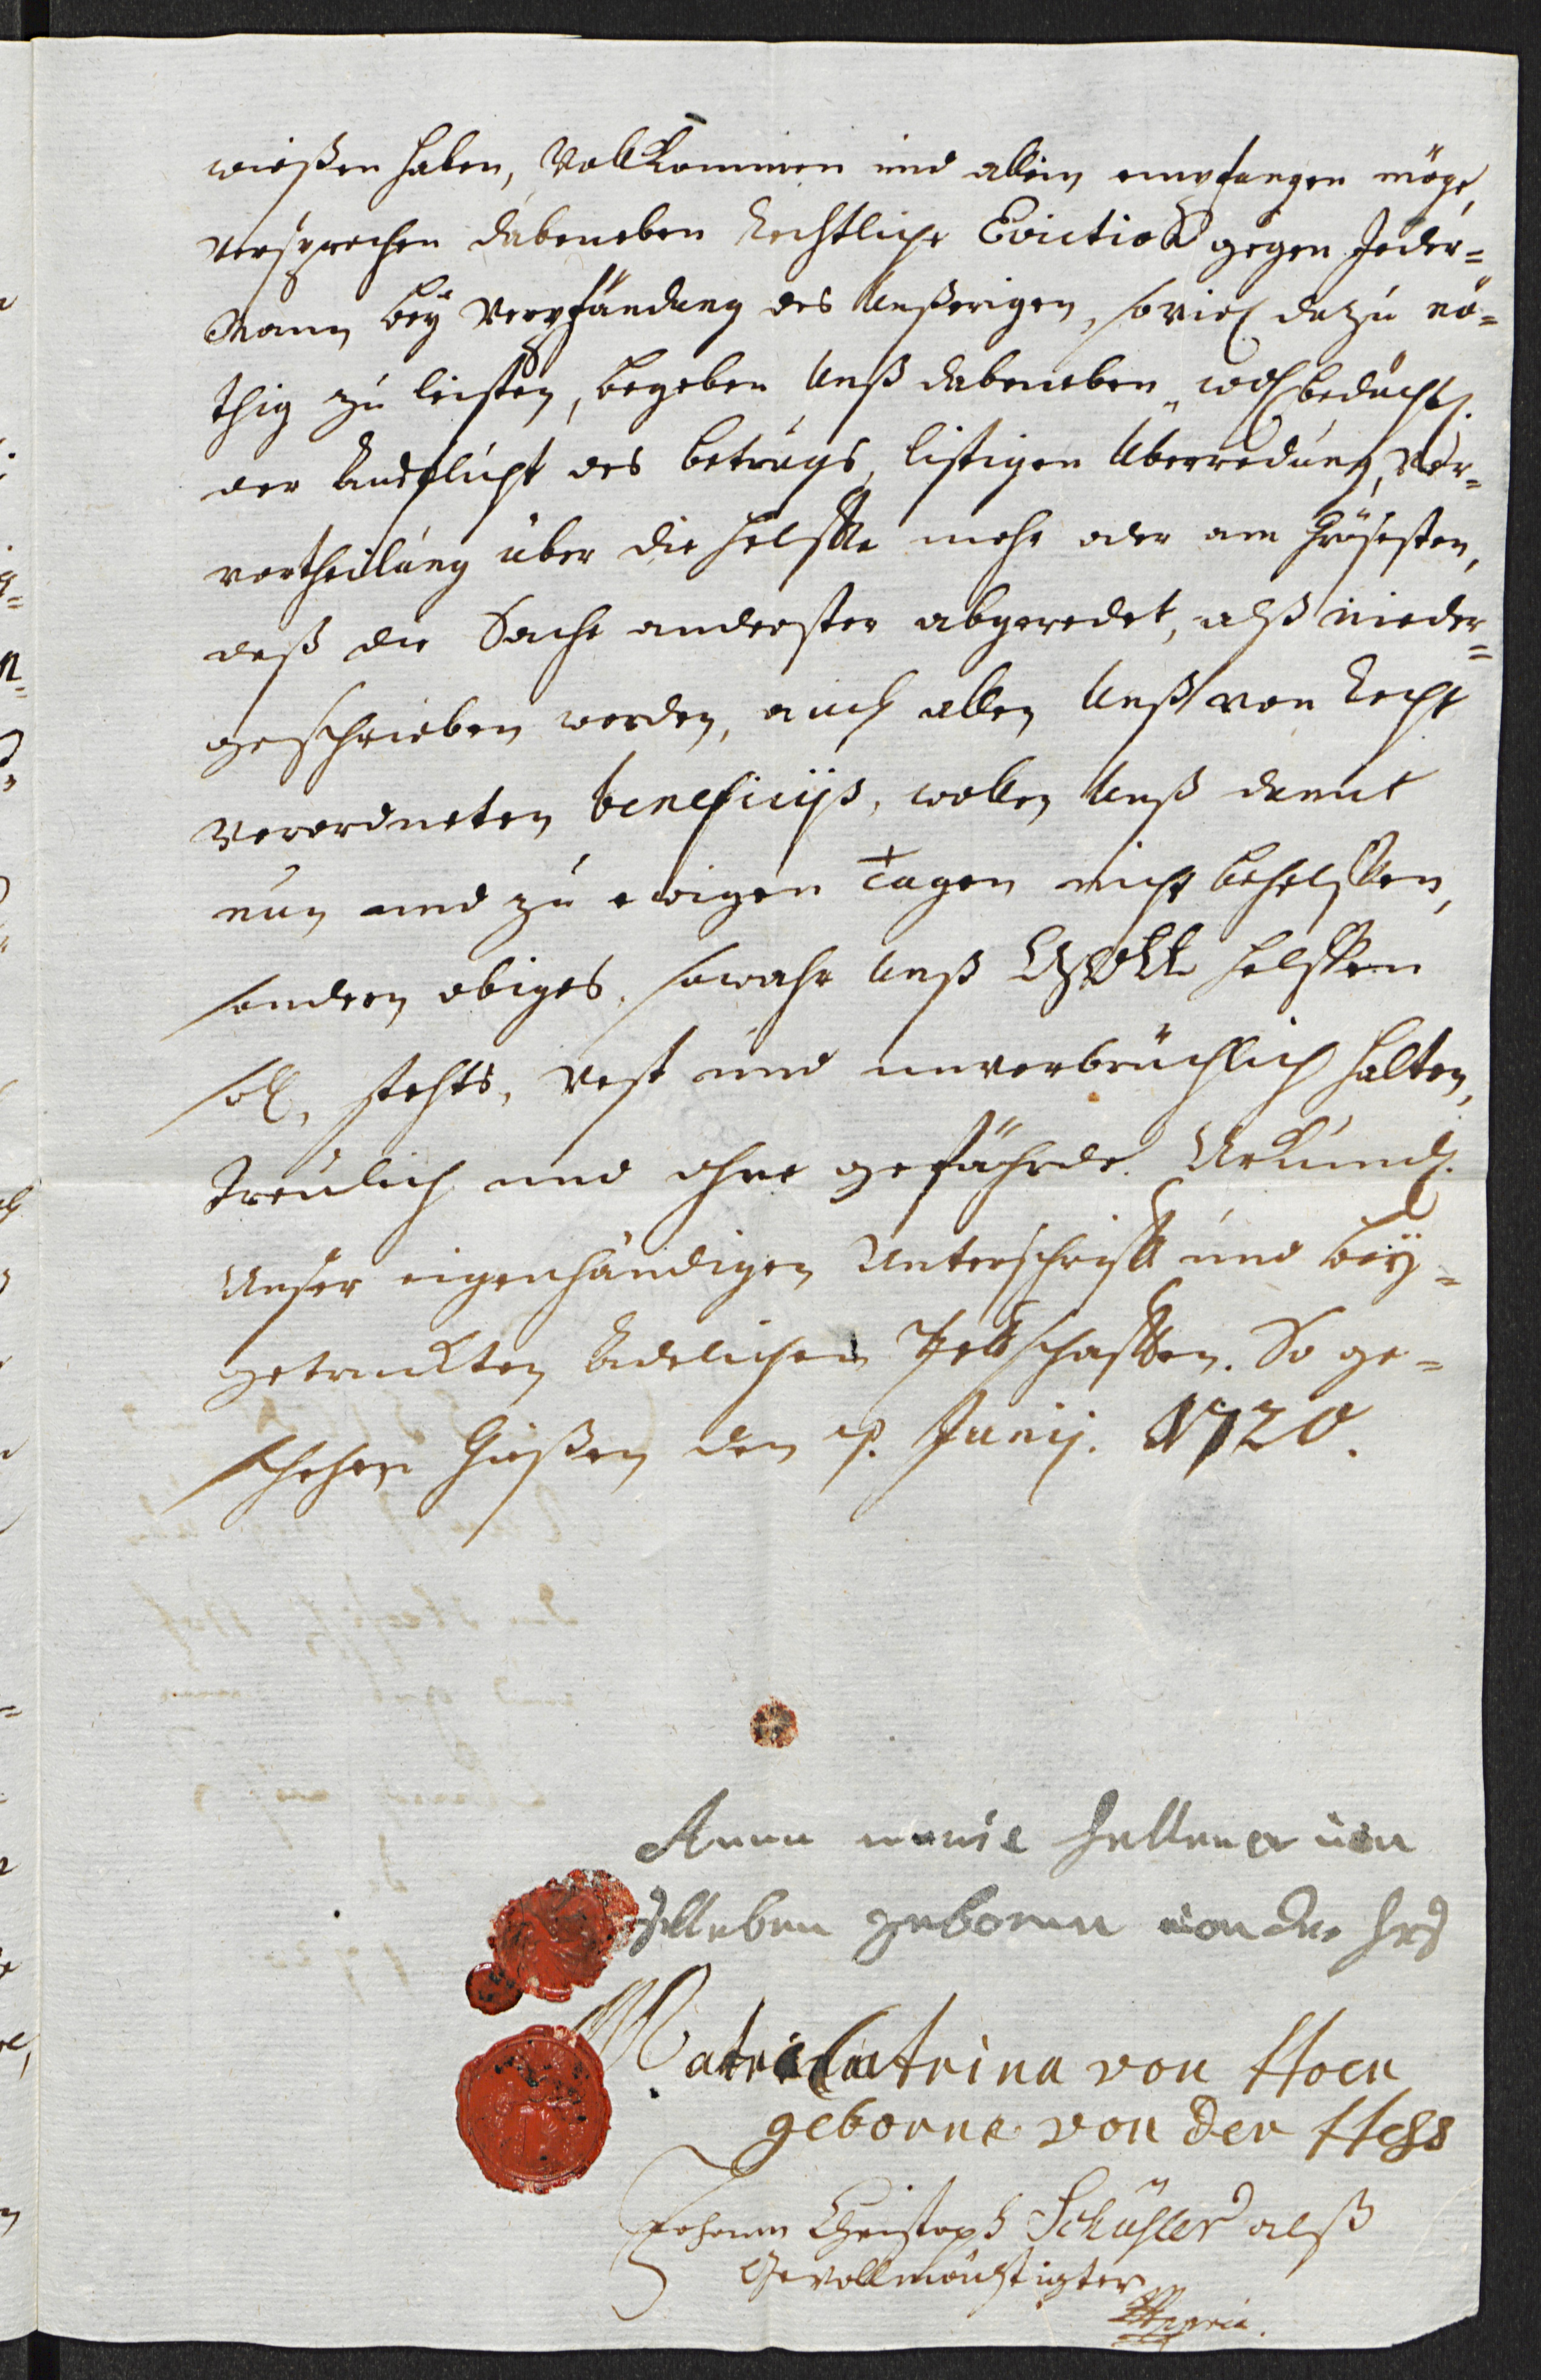 wießen haben, Vollkommen und allein empfangen möge,
versprechen dabeneben Rechtliche Eviction gegen Jeder=
Mann bey Verpfändung des Unßerigen, soviel dazu nö=
thig zu leisten, begeben Unß dabeneben wohlbedächtl.
der Ausflucht des betrugs, listigen Uberredung, Ver=
vortheilung über die helffte mehr oder am Grösesten,
daß die Sache anderster abgeredet, alß nieder=
geschrieben worden, auch allen Unß von Recht
verordneten beneficijs, wollen Unß damit
nun und zu ewigen Tagen nicht behelffen,
sondern obiges, sowahr Unß Gott helffen
soll, stehts, vest und unverbrüchlich halten,
Treulich und ohne gefährde. Uhrkundl.
Unser eigenhändigen Unterschrifft und bey=
getruckten Adelichen Pettschafften. So ge=
schehen Gießen den Junij. 1720.
Anna marie hellena von
geboren von der heß
Catrina von Hoen
geborne von der Hess
Johann Christoph Schüßler alß
Gevollmächtigter
Mppria.